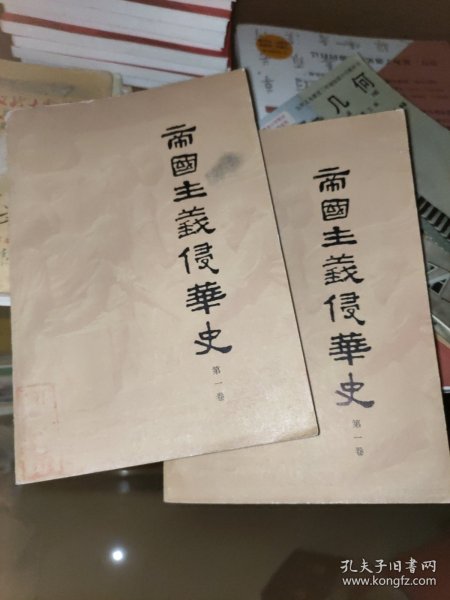 帝國主義侵華史
第一卷
帝國主義侵華史
第一卷
几何
孔夫子旧书网
www.kongfz.com